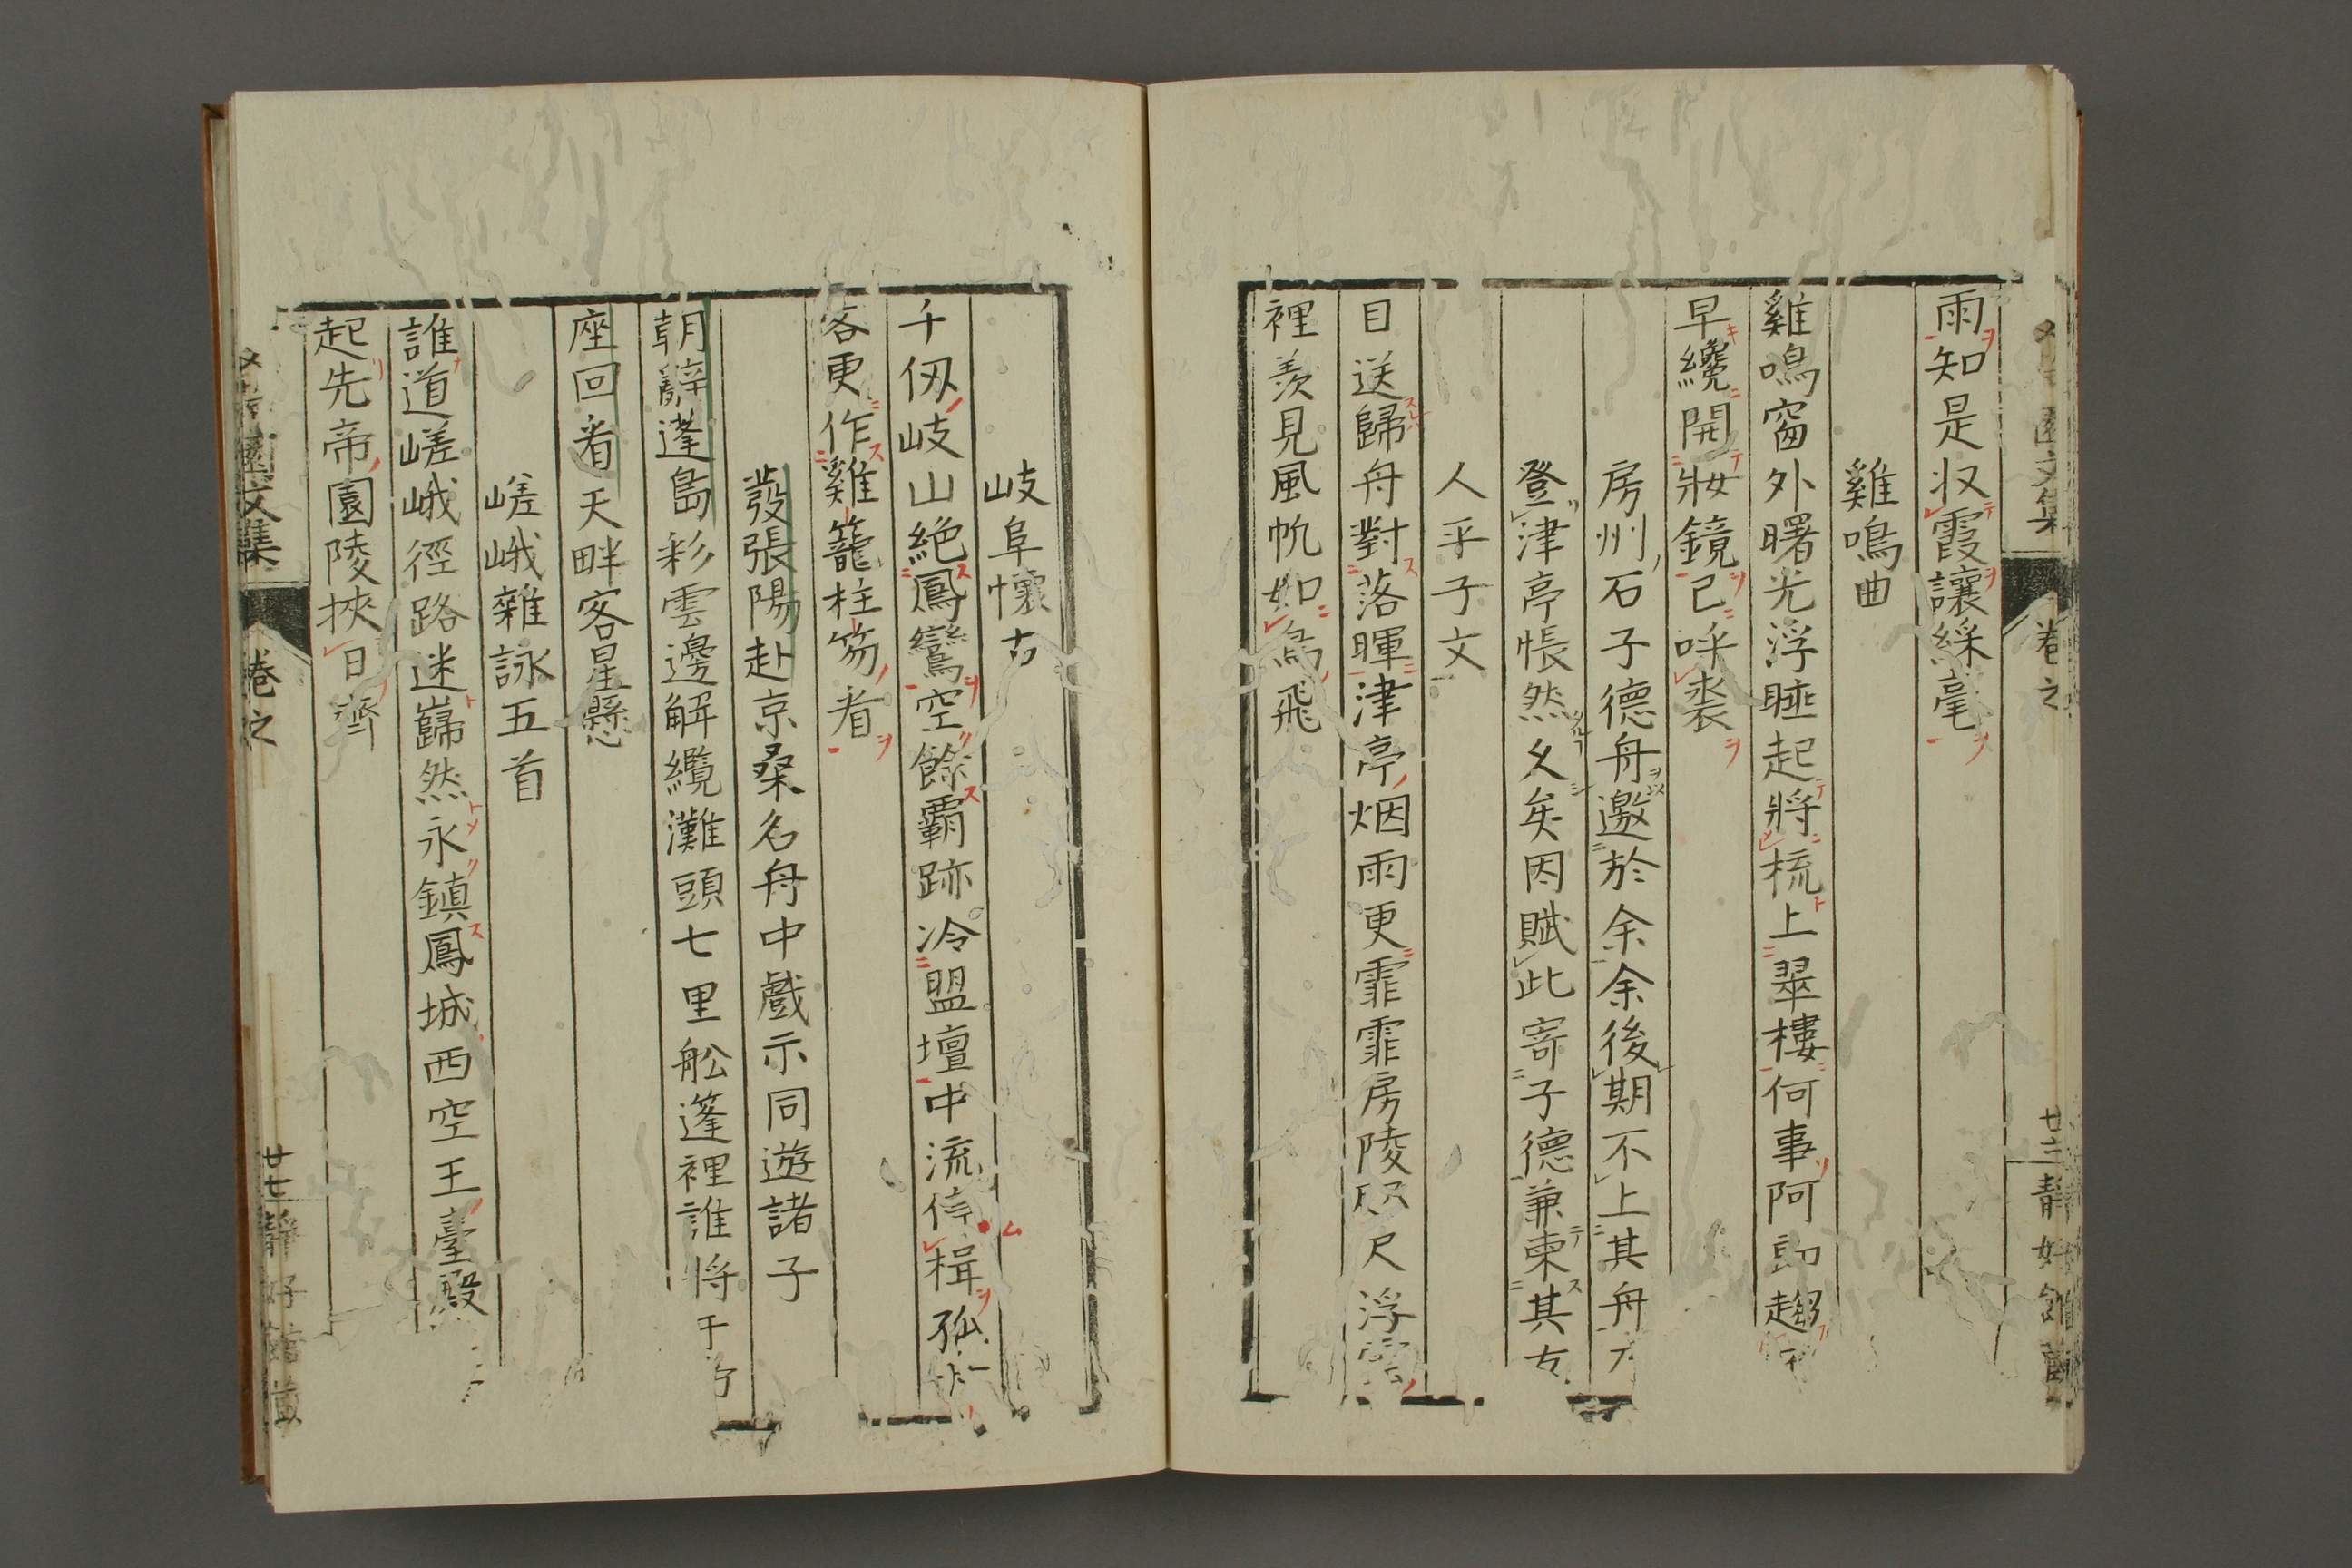 雨知是収霞讓綵毫
雞鳴曲
雞鳴窗外曙光浮睡起將梳上翠樓何事阿郎趨
早纔開妝鏡已呼裘
房州石子德舟邀於余余後期不上其舟
登津亭悵然久矣因賦此寄子德兼柬其
人乎子文
目送歸舟對落暉津亭烟雨更霏霏房陵咫尺浮雲
裡羨見風帆如鳥飛
岐阜懷古
千仭岐山絶鳳鸞空餘覇跡冷盟壇中流停楫孤
客更作雞籠柱笏看
發張陽赴京桑名舟中戲示同遊諸子
朝辭蓬島彩雲邊解纜灘頭七里舩篷裡誰將
座回看天畔客星懸
嵯峨雜詠五首
誰道嵯峨徑路迷巋然永鎮鳳城西空王臺殿
起先帝園陵挾日齊
園文集 卷之 廿七 靜好舘藏